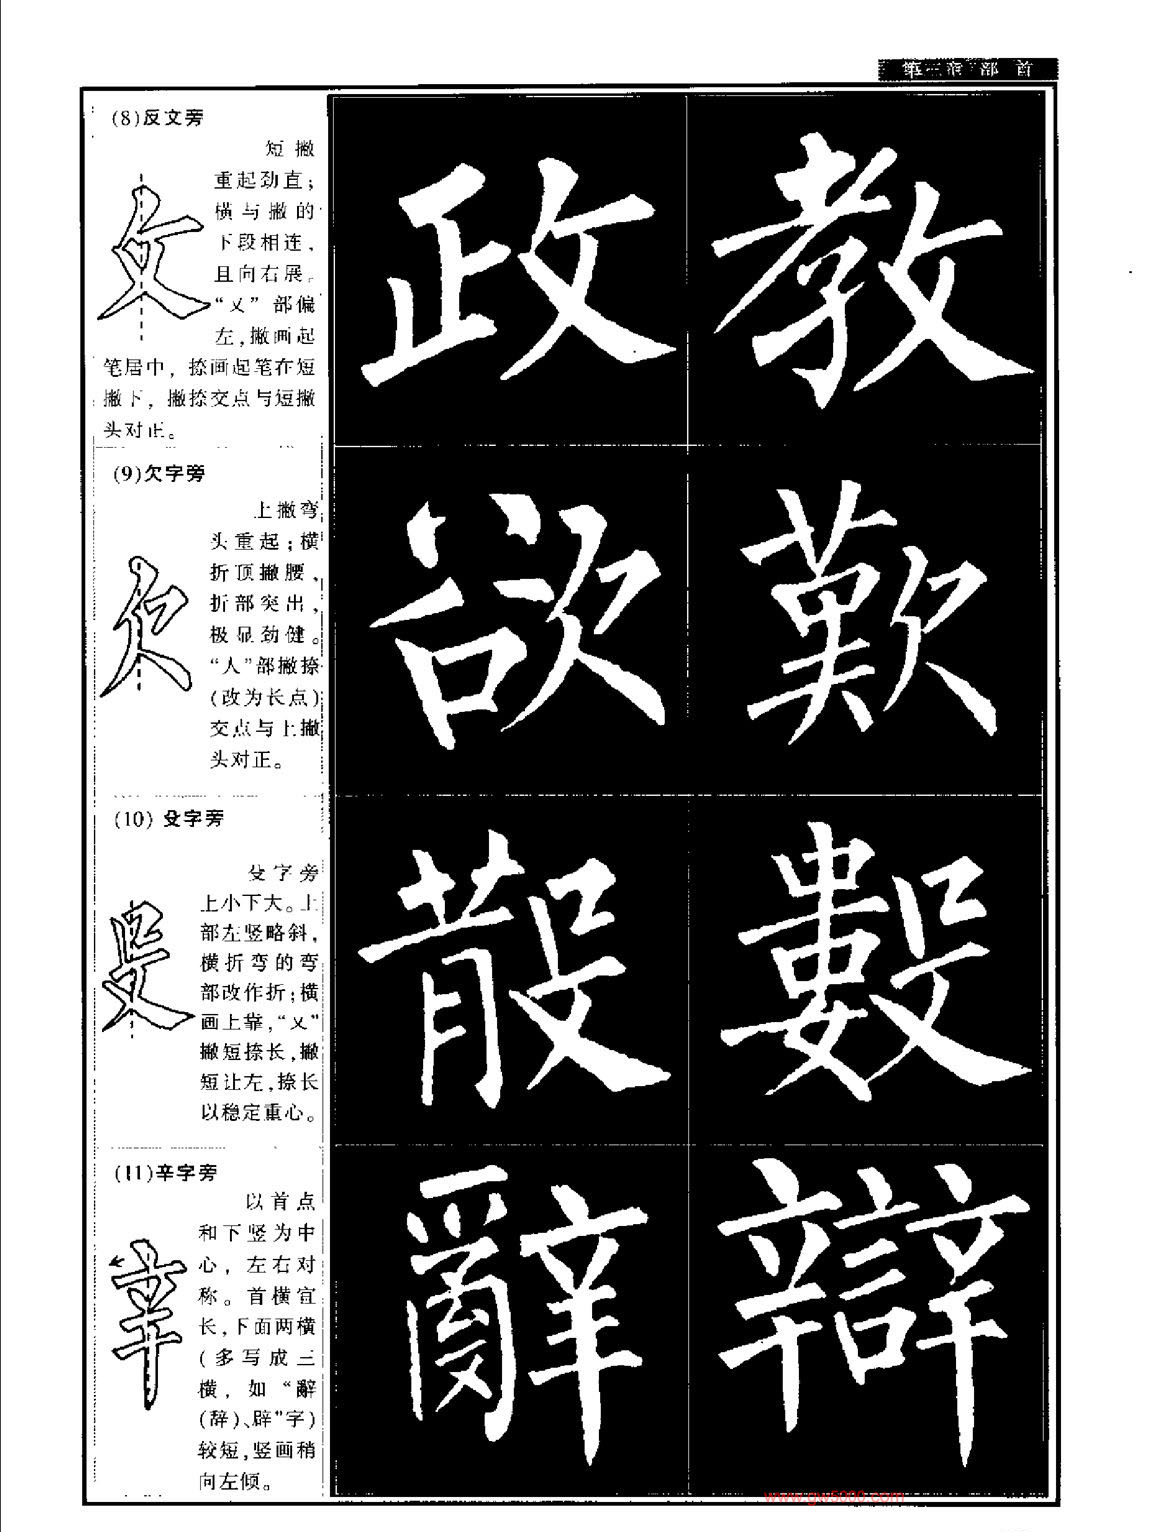 第三章 部 首
(8)反文旁
短 撇
重起劲直；
横与撇的
下段相连，
且向右展。
“乂”部偏
左，撇画起
笔居中，捺画起笔在短
撇下，撇捺交点与短撇
头对正。
政 教
(9)欠字旁
上撇弯
头重起；横
折顶撇腰，
折部突出，
极显劲健。
“人”部撇捺
(改为长点)
交点与上撇
头对正。
欲 歎
(10) 殳字旁
殳字旁
上小下大。上
部左竖略斜，
横折弯的弯
部改作折；横
画上靠，“乂”
撇短捺长，撇
短让左，捺长
以稳定重心。
散 數
(11)辛字旁
以首点
和下竖为中
心，左右对
称。首横宜
长，下面两横
(多写成三
横，如“辭
(辞)、辟”字)
较短，竖画稍
向左倾。
辭 辯
www.gw5000.com